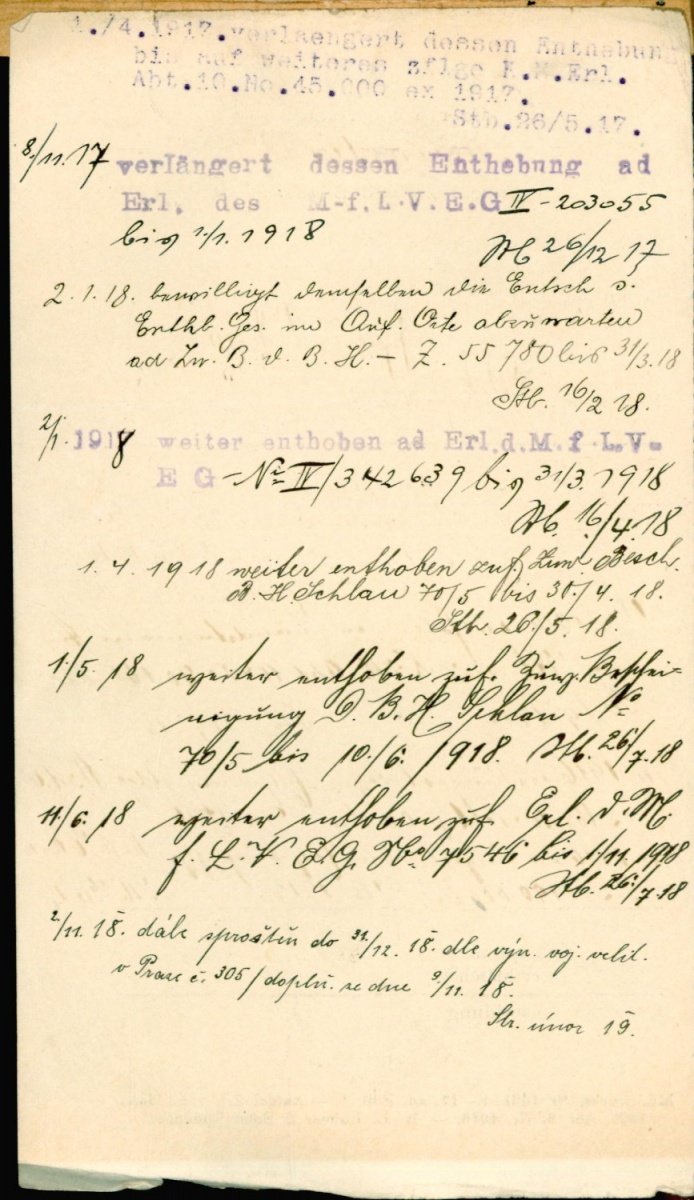 1./4.1917.verlaengert dessen Enthebung
bis auf weiteres zflge K.M.Erl.
Abt.10.No.45.000 ex 1917.
Stb.26/5.17.
8/11.17 verlängert dessen Enthebung ad
Erl. des M-f.L.V.E.G IV - 203055
bis 1/1.1918
Stb 26/12 17
2.1.18. bewilligt demselben die Entsch d.
Enthb. Ges. im Auf. Orte abzuwarten
ad Zw. B. d. B. H. - Z. 55780 bis 31/3.18
Stb. 16/2 18.
2/1. 1918 weiter enthoben ad Erl.d.M.f.L.V-
E G - No IV/342639 bis 31/3.1918
Stb. 16/4.18
1.4.1918 weiter enthoben zuf. Zuw. Besch.
B. H. Schlan 70/5 bis 30./4. 18.
Stb. 26./5. 18.
1./5. 18 weiter enthoben zuf. Zuw. Beschei-
nigung d. B. H. Schlan No
70/5 bis 10./6. 1918. Stb. 26/7.18
11/6. 18 weiter enthoben zuf. Erl. d. M.
f. L. V. E G. No 7546 bis 1./11. 1918
Stb. 26./7.18
2/11. 18. dále sproštěn do 31/12. 18. dle výn. voj. velit.
v Praze č. 305/doplň. ze dne 9/11. 18.
Str. únor 19.